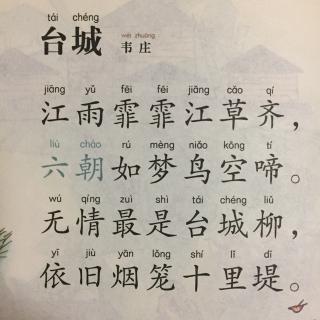 tái chéng
台城
wéi zhuāng
韦庄
jiāng yǔ fēi fēi jiāng cǎo qí
江雨霏霏江草齐，
liù cháo rú mèng niǎo kōng tí
六朝如梦鸟空啼。
wú qíng zuì shì tái chéng liǔ
无情最是台城柳，
yī jiù yān lǒng shí lǐ dī
依旧烟笼十里堤。